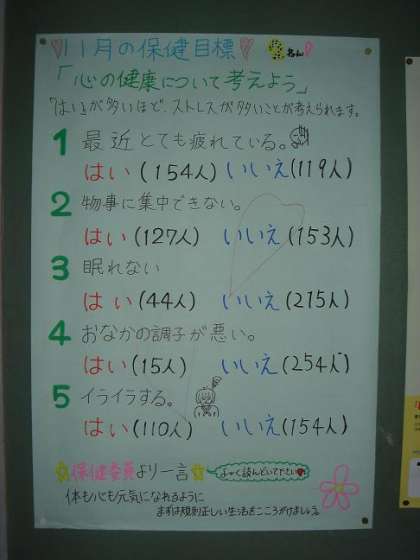 11月の保健目標
「心の健康について考えよう」
「はい」が多いほど、ストレスが多いことが考えられます。
1 最近とても疲れている。
はい(154人) いいえ(119人)
2 物事に集中できない。
はい(127人) いいえ(153人)
3 眠れない
はい(44人) いいえ(215人)
4 おなかの調子が悪い。
はい(15人) いいえ(254人)
5 イライラする。
はい(110人) いいえ(154人)
保健委員より一言
よーく読んどいて下さい
体も心も元気になれるように
まずは規則正しい生活をこころがけましょう